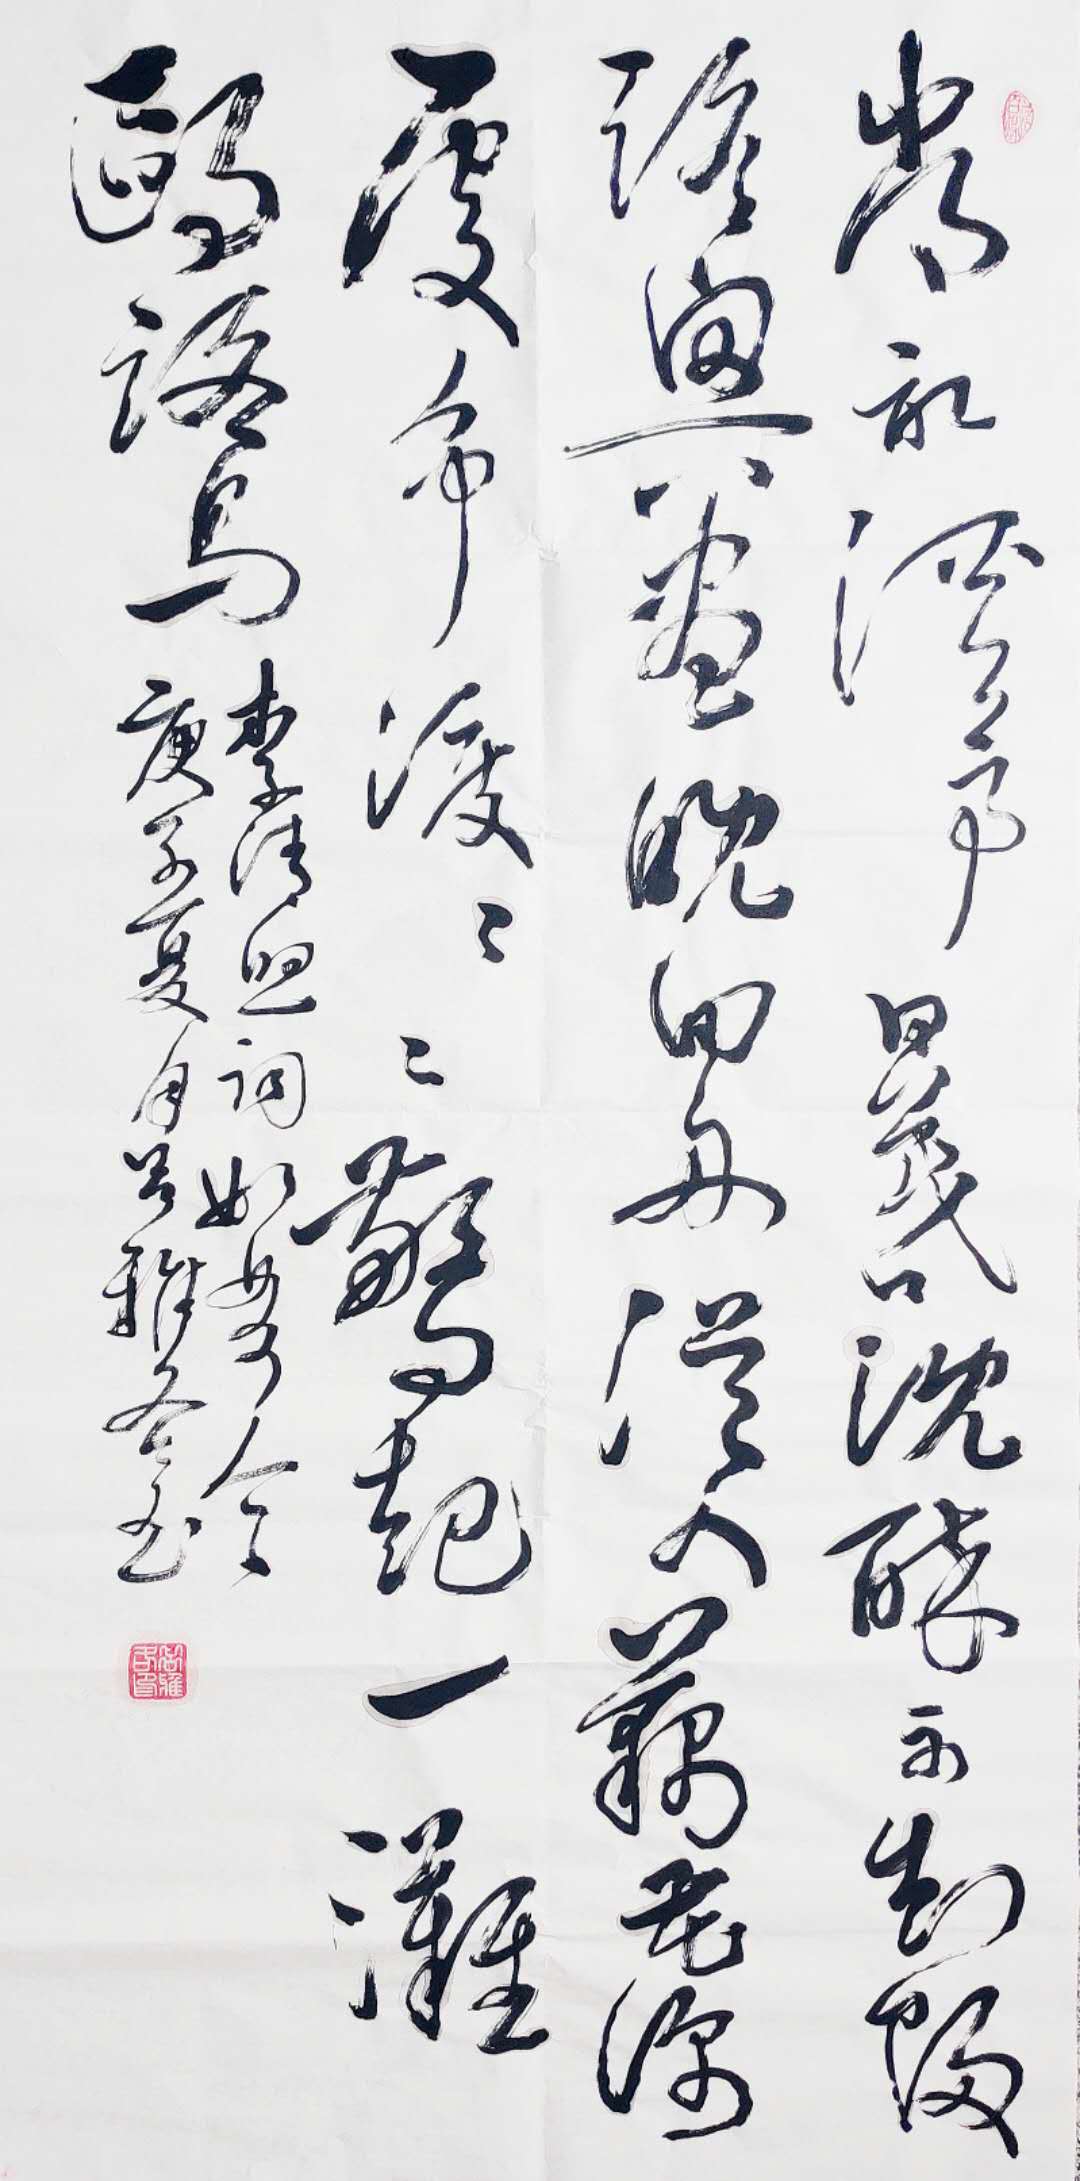 常記溪亭日暮沈醉不知歸
路興盡晚回舟誤入藕花深
處爭渡々々驚起一灘
鷗鷺
李清照詞如夢令
庚子夏月